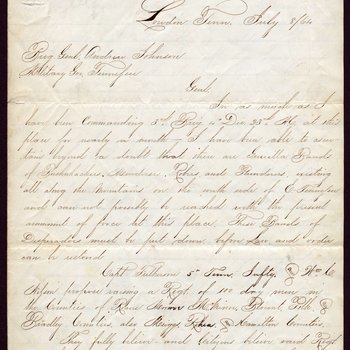 Loudon Tenn. July 8/64
Brig Genl. Andrew Johnson
Military Gov. Tennessee
Genl.
In as much as I
have been Commanding 3d Brig 4" Div. 23d A.C. at this
place for nearly a month - I have been able to ascer-
tain beyond a doubt that there are Guerilla Bands
of Bushwhackers, Murderers, Robers and Plunderers, existing
all along the Mountains on the south side of E Tennessee
and can not possibly be reached with the present
ammount of force left this place. These Bands of
Desperadoes must be put down before Law and order
can be restored
Capt Patterson 5" Tenn. Infty. @ Wm C
propose raising a Regt of 100 day men in
the Counties of Roane Monroe McMinn, Blount, Polk @
Bradley Counties, also Meigs, Rhea @ Hamilton Counties.
They fully believe and Citizens believe said Regt